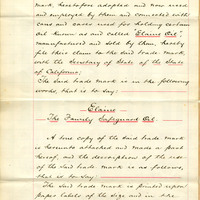 mark, heretofore adopted and now used
and employed by them and connected with
cans and cases used for holding certain
Oil known as and called "Elaine Oil,"
manufactured and sold by them, hereby
file their claim to the said trade mark
with the Secretary of State of the State
of California;
The said trade mark is in the following
words, that is to say:
Elaine
The Family Safeguard Oil
A true copy of the said trade mark
is hereunto attached and made a part
hereof, and the description of the use
of the said trade mark is as follows,
that is to say:
The said trade mark is printed upon
paper labels of the size and in the